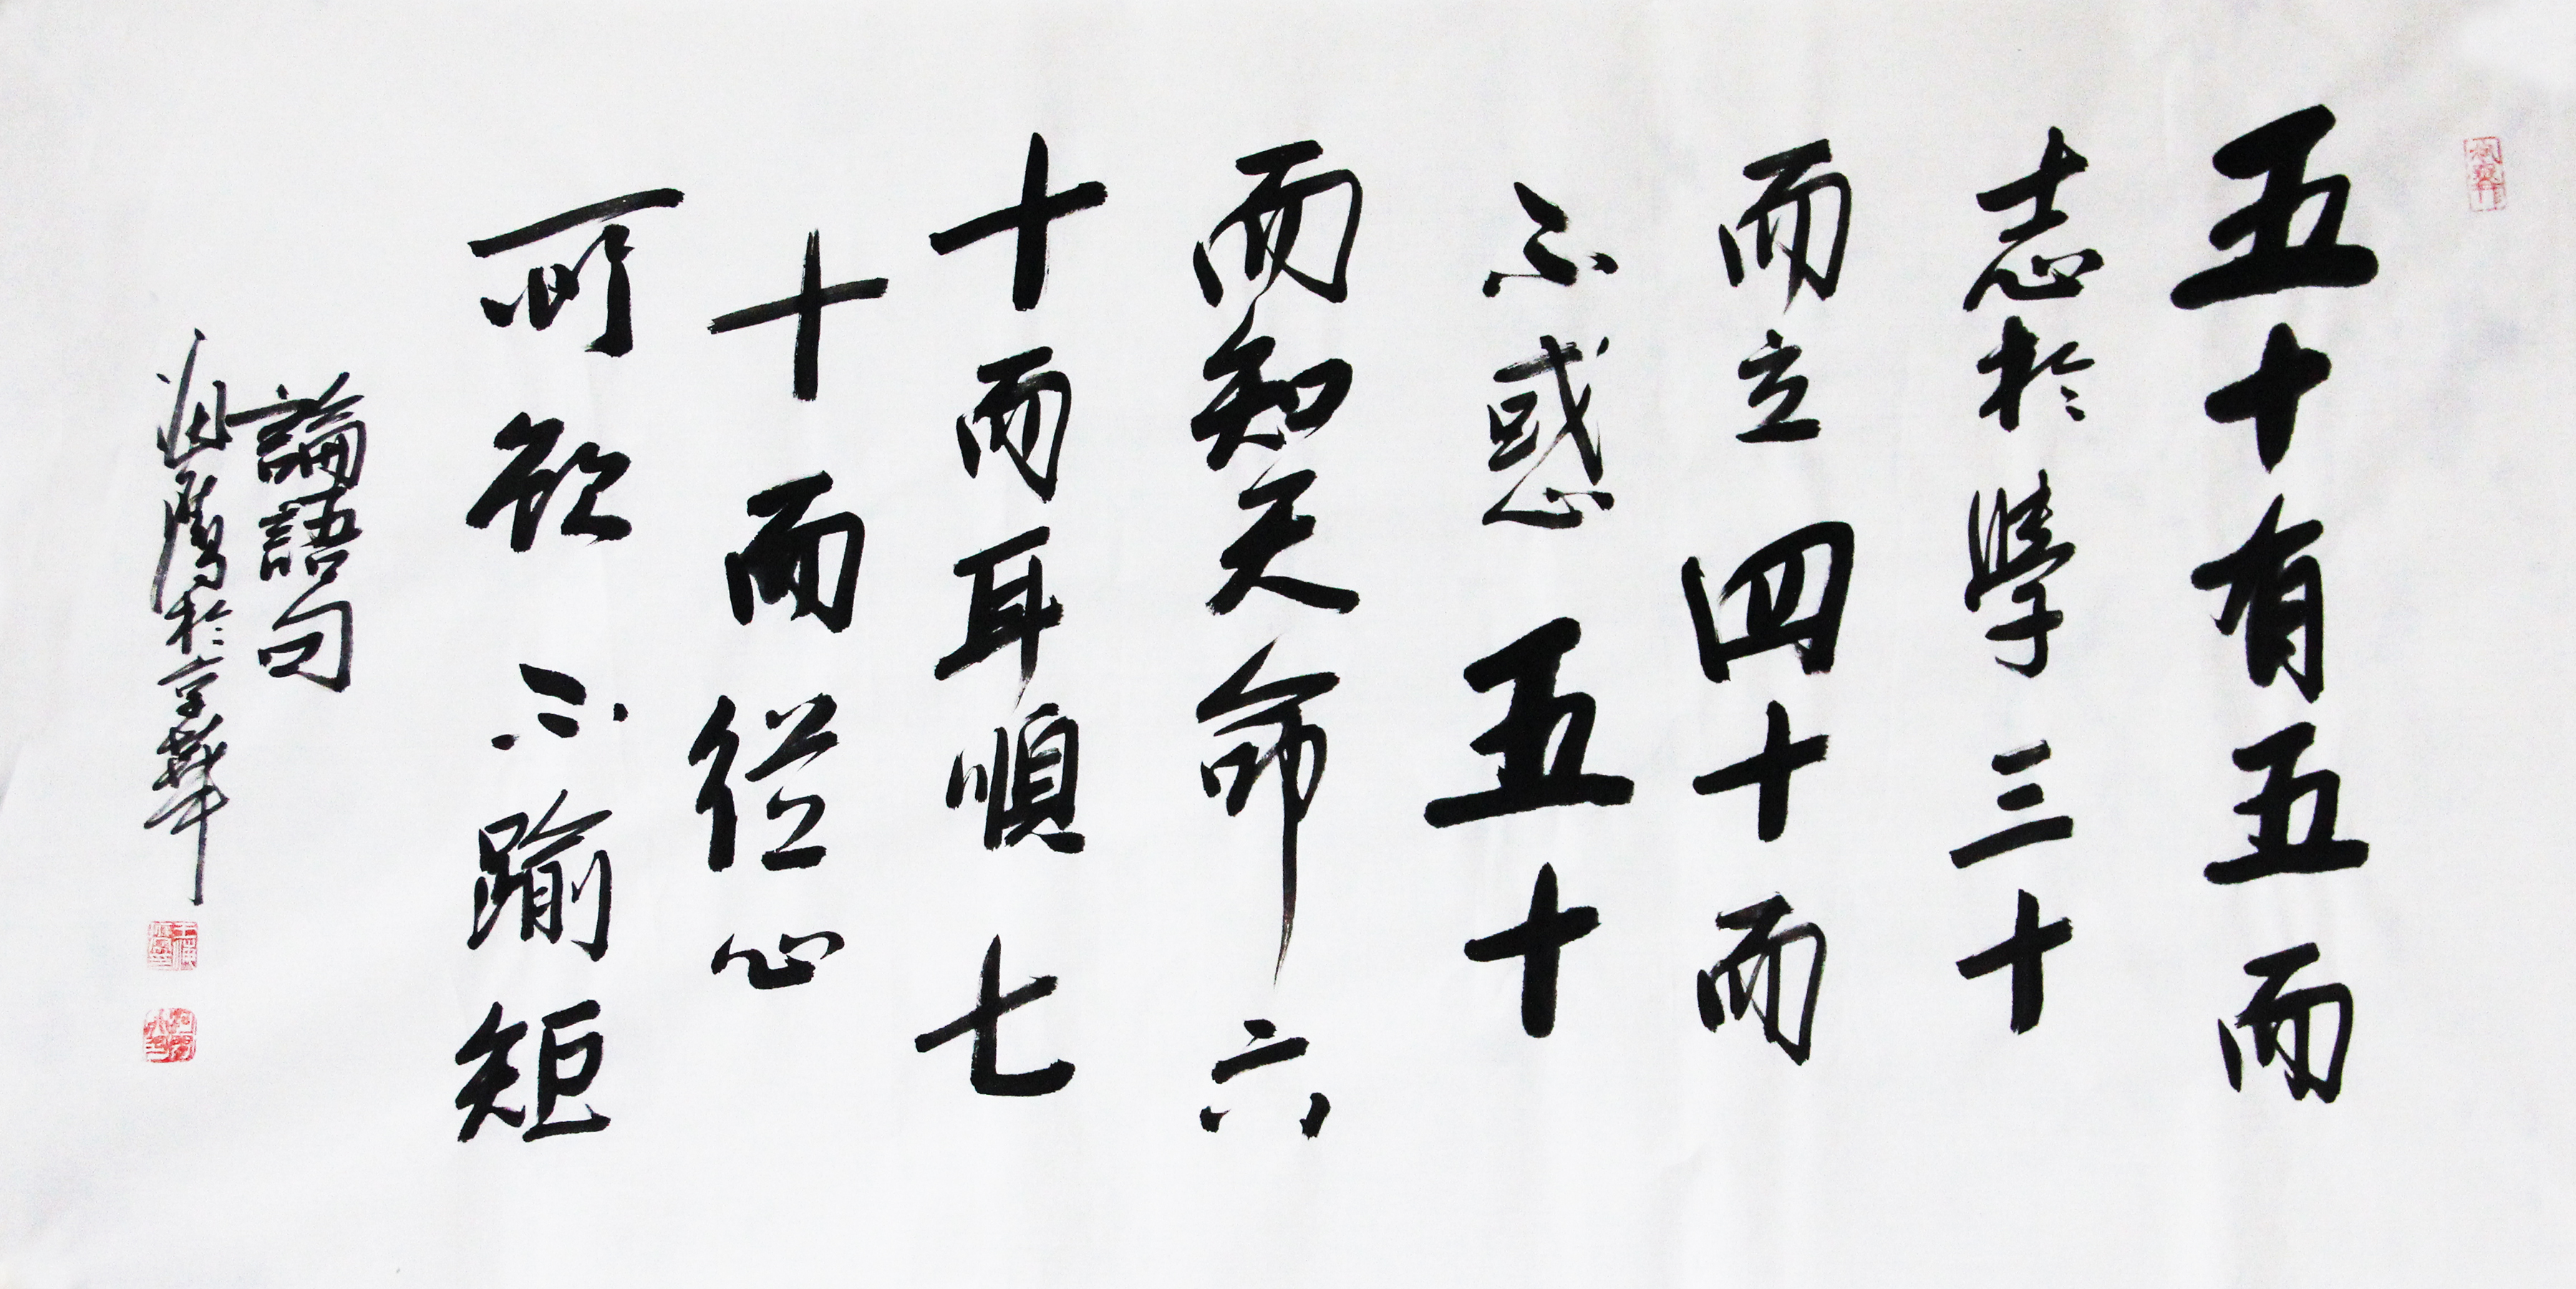 五十有五而
志於學三十
而立四十而
不惑五十
而知天命六
十而耳順七
十而從心
所欲不踰矩
論語句
於京華